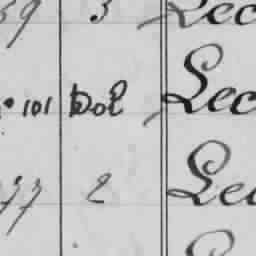 59 3 Lec
101 Dol Lec
77 2 Lec